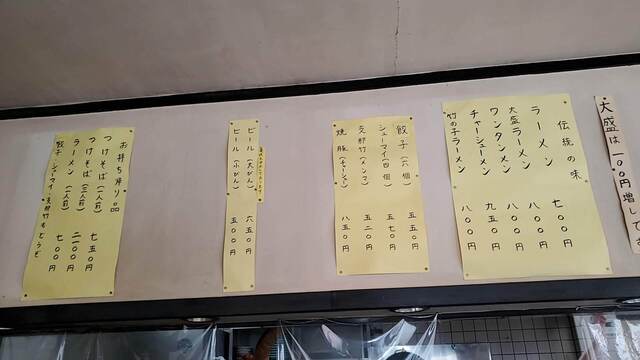 大盛は一〇〇円増しです
伝統の味
ラーメン 七〇〇円
大盛ラーメン 八〇〇円
ワンタンメン 八〇〇円
チャーシューメン 九五〇円
竹の子ラーメン 八〇〇円
餃子(六個) 五五〇円
シューマイ(四個) 五七〇円
支那竹(メンマ) 五二〇円
焼豚(チャーシュー) 八五〇円
ビール(大びん) 六五〇円
ビール(小びん) 五〇〇円
お持ち帰り品
つけそば(一人前) 七五〇円
つけそば(三人前) 二一〇〇円
ラーメン(一人前) 七〇〇円
餃子、シューマイ、支那竹もどうぞ